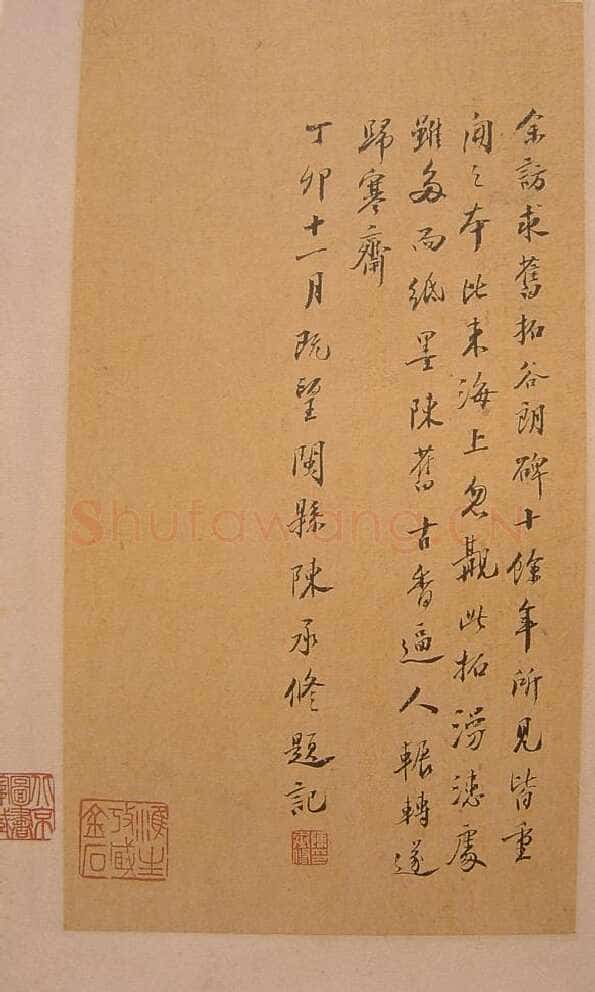 余訪求舊拓谷朗碑十餘年所見皆重
開之本比來海上忽覯此拓漫漶處
雖多而紙墨陳舊古香逼人輾轉遂
歸寒齋
丁卯十一月既望閩縣陳承修題記
淮生
攷藏
金石
Shufawang.CN